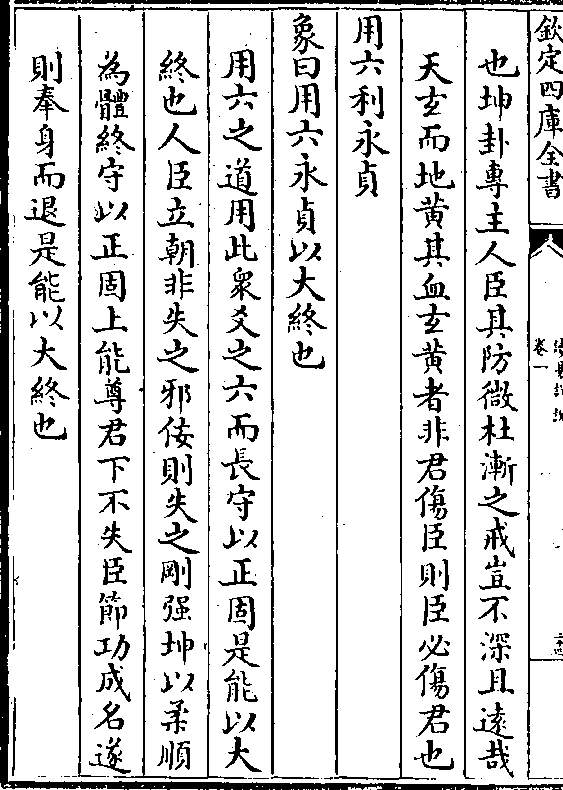 欽定四庫全書
卷一
也坤卦專主人臣其防微杜漸之戒豈不深且遠哉
天玄而地黄其血玄黄者非君傷臣則臣必傷君也
用六利永貞
象曰用六永貞以大終也
用六之道用此衆爻之六而長守以正固是能以大
終也人臣立朝非失之邪佞則失之剛强坤以柔順
為體終守以正固上能尊君下不失臣節功成名遂
則奉身而退是能以大終也